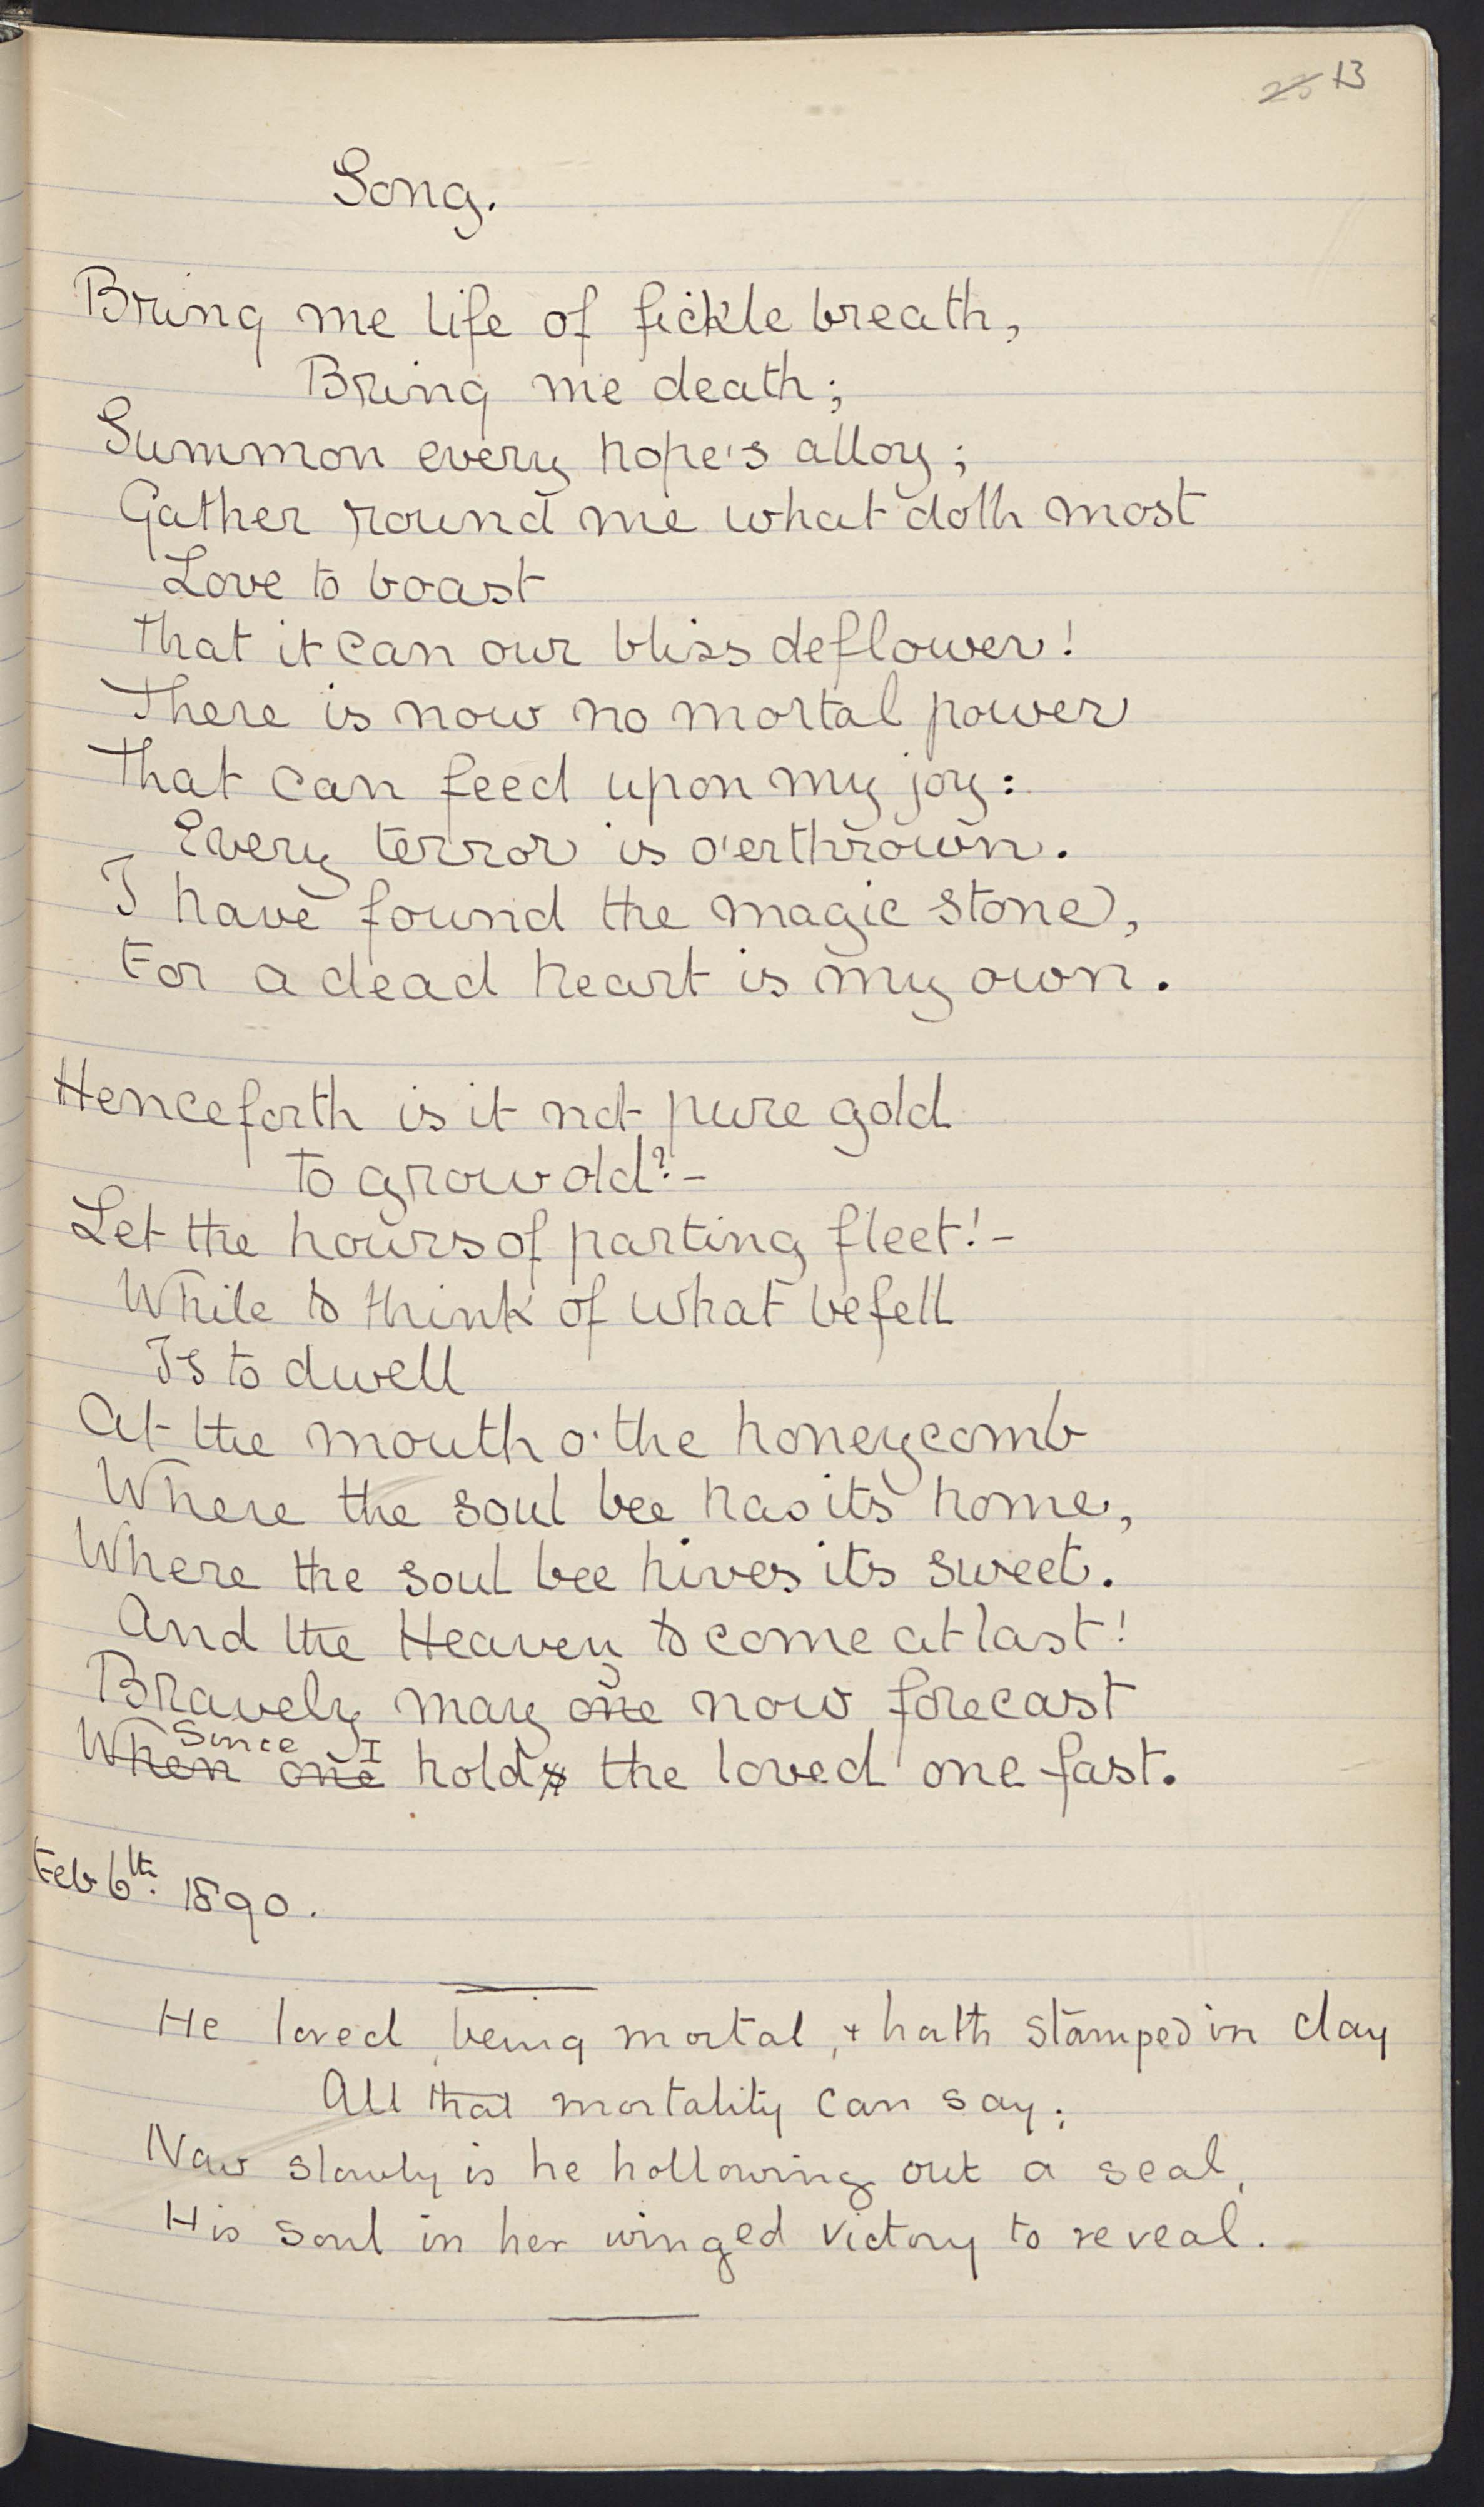 13
Song.
Bring me life of fickle breath,
Bring me death;
Summon every hope's alloy;
Gather round me what doth most
Love to boast
That it can our bliss deflower!
There is now no mortal power
That can feed upon my joy:
Every terror is o'erthrown.
I have found the magic stone,
For a dead heart is my own.
Henceforth is it not pure gold
To grow old? -
Let the hours of parting fleet! -
While to think of what befell
Is to dwell
At the mouth o' the honeycomb
Where the soul bee has its home,
Where the soul bee hives its sweet.
And the Heaven to come at last!
Bravely may one now forecast
Since I
When one holds the loved one fast.
Feb 6th. 1890.
He loved, being mortal, + hath stamped in clay
All that mortality can say;
Now slowly is he hollowing out a seal,
His soul in her winged victory to reveal.